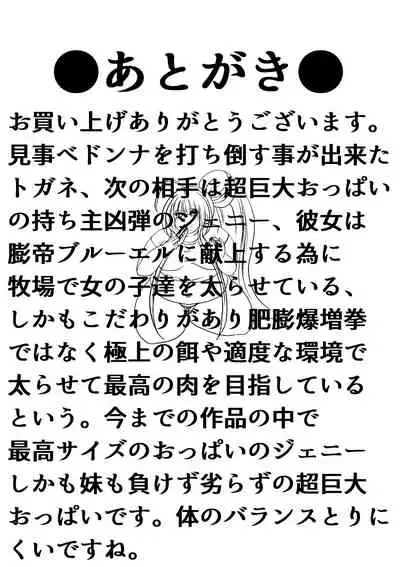 ●あとがき●
お買い上げありがとうございます。
見事ベドンナを打ち倒す事が出来た
トガネ、次の相手は超巨大おっぱい
の持ち主凶弾のジェニー、彼女は
膨帝ブルーエルに献上する為に
牧場で女の子達を太らせている、
しかもこだわりがあり肥膨爆増拳
ではなく極上の餌や適度な環境で
太らせて最高の肉を目指している
という。今までの作品の中で
最高サイズのおっぱいのジェニー
しかも妹も負けず劣らずの超巨大
おっぱいです。体のバランスとりに
くいですね。